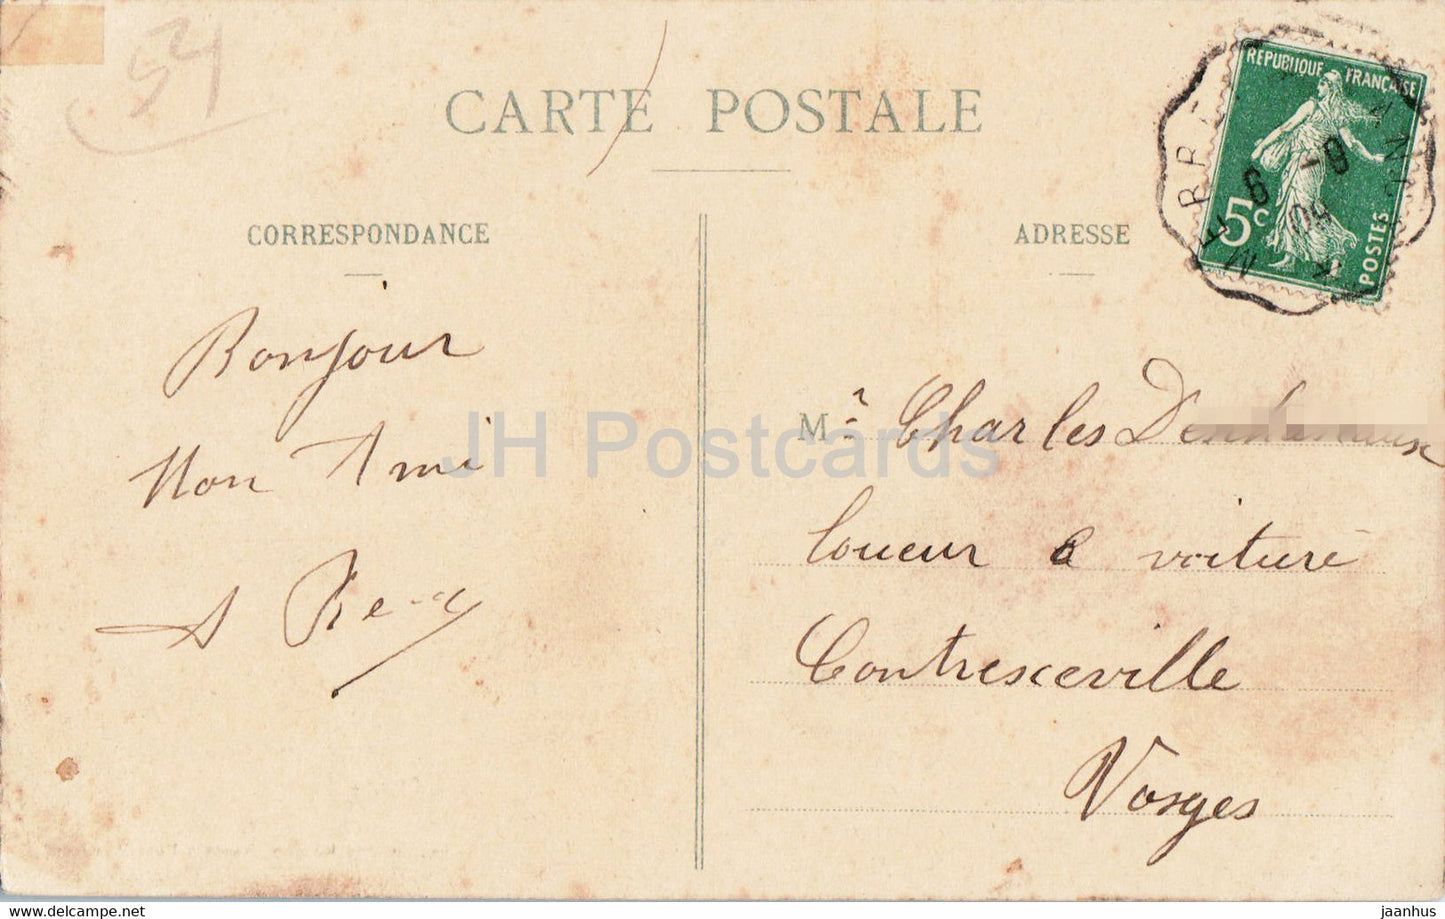 54
CARTE POSTALE
RÉPUBLIQUE FRANÇAISE
5c
POSTES
6 -9
09
CORRESPONDANCE
ADRESSE
Bonjour
Mon Ami
Mr Charles
loueur a voiture
Contrexeville
Vosges
JH Postcards
www.delcampe.net
jaanhus